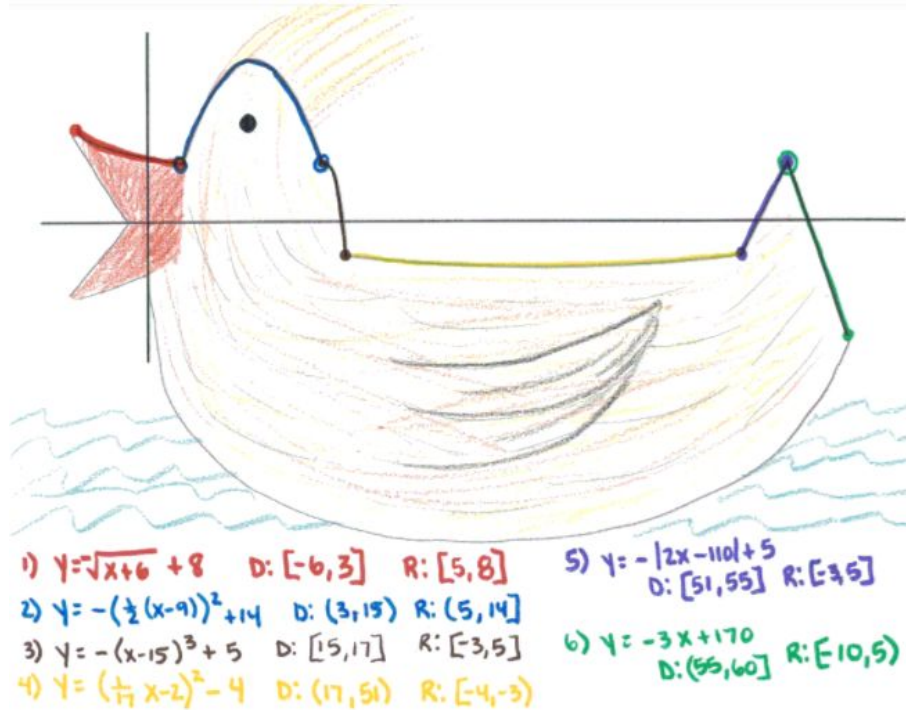 1) y=-√(x+6) + 8 D: [-6,3] R: [5,8]
2) y= -(½(x-9))² +14 D: (3,15) R: (5,14]
3) y= -(x-15)³ + 5 D: [15,17] R: [-3,5]
4) y= (1/17 x-2)² - 4 D: (17,51) R: [-4,-3)
5) y= -|2x-110|+5
D: [51,55] R: [-3,5]
6) y= -3x+170
D: (55,60] R: [-10,5)